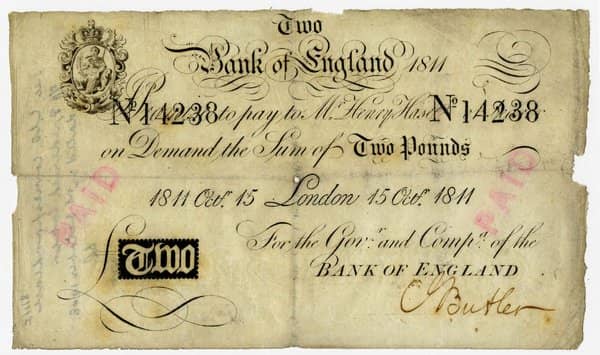 Two
Bank of England 1811
Nº14238 to pay to Mr. Henry Hase Nº14238
on Demand the Sum of Two Pounds
1811 Octr. 15 London 15 Octr. 1811
PAID PAID
For the Govr. and Compa. of the
£ Two BANK OF ENGLAND
C Butler